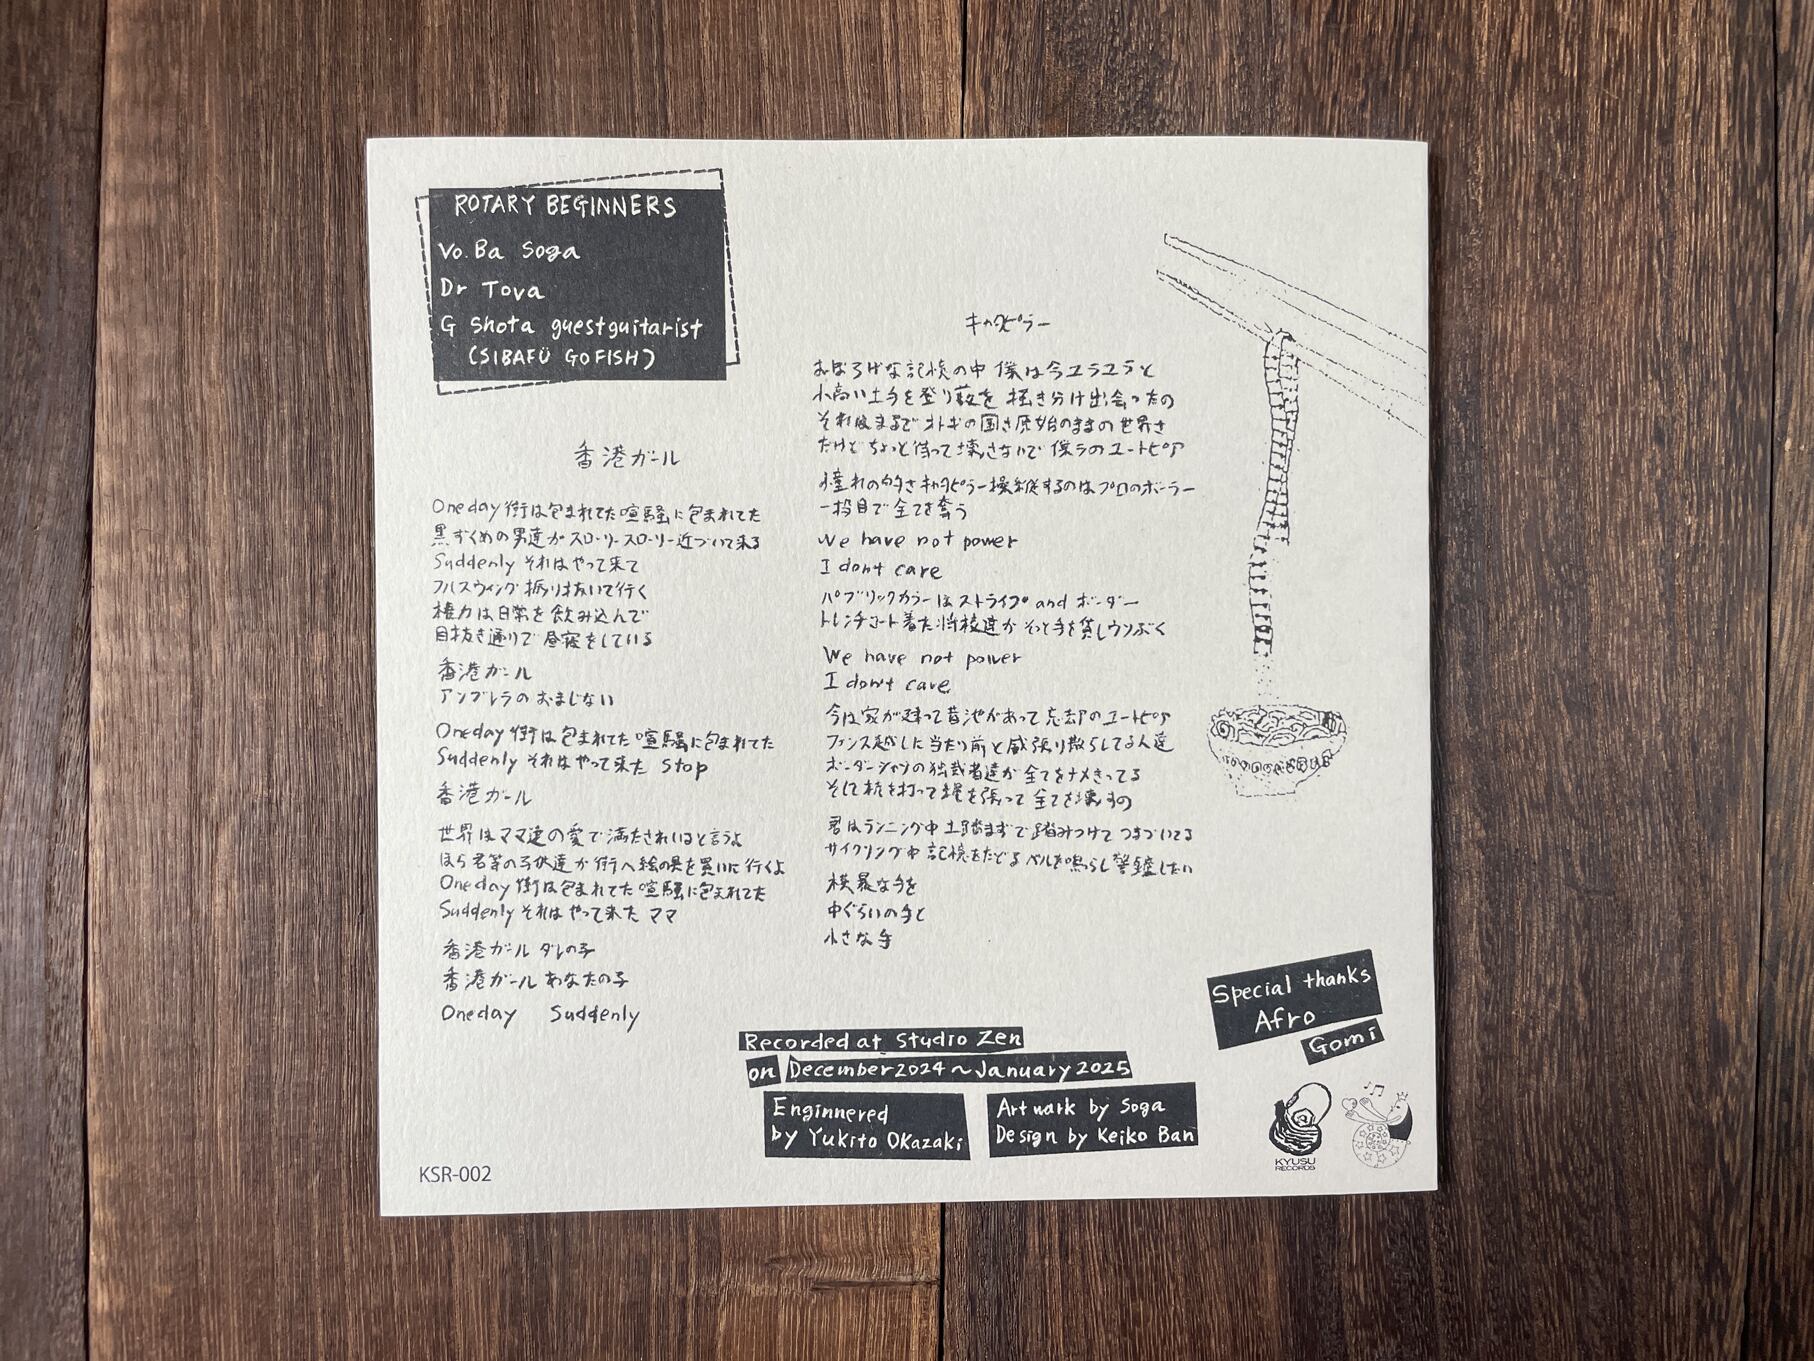 ROTARY BEGINNERS
Vo.Ba Soga
Dr Tova
G Shota guestguitarist
(SIBAFÜ GOFISH)
香港ガール
Oneday 街は包まれてた 喧騒に包まれてた
黒ずくめの男達が スローリースローリー近づいて来る
Suddenly それはやって来て
フルスウィング 振り抜いて行く
権力は日常を飲み込んで
目抜き通りで 昼寝をしている
香港ガール
アンブレラのおまじない
Oneday 街は包まれてた 喧騒に包まれてた
Suddenly それはやって来た stop
香港ガール
世界はママ達の愛で満たされいると言うよ
ほら君等の子供達が街へ絵の具を買いに行くよ
Oneday 街は包まれてた 喧騒に包まれてた
Suddenly それはやって来た ママ
香港ガール ダレの子
香港ガール あなたの子
Oneday Suddenly
キャタピラー
おぼろげな記憶の中 僕は今ユラユラと
小高い土手を登り藪を 掻き分け出会ったの
それはまるで オトギの国さ原始のままの世界さ
だけど ちょっと待って壊さないで 僕ラのユートピア
憧れの的さキャタピラー操縦するのはプロのボーラー
一投目で全てを奪う
We have not power
I dont care
パブリックカラーはストライプ and ボーダー
トレンチコート着た将校達が そっと手を貸しウソぶく
We have not power
I don't care
今は家が建って昔池があって 忘却のユートピア
フェンス越しに当たり前と威張り散らしてる人達
ボーダーシャツの独裁者達が 全てをナメきってる
そして杭を打って縄を張って 全てを壊すの
君はランニング中 土踏まずで踏みつけて つまづいてる
サイクリング中 記憶をたどる ベルを鳴らし警鐘したい
横暴な手を
中ぐらいの手と
小さな手
Special thanks
Afro
Gomi
Recorded at Studio Zen
on December2024～January2025
Enginnered
by Yukito Okazaki
Art wark by Soga
Design by Keiko Ban
KYUSU
RECORDS
KSR-002